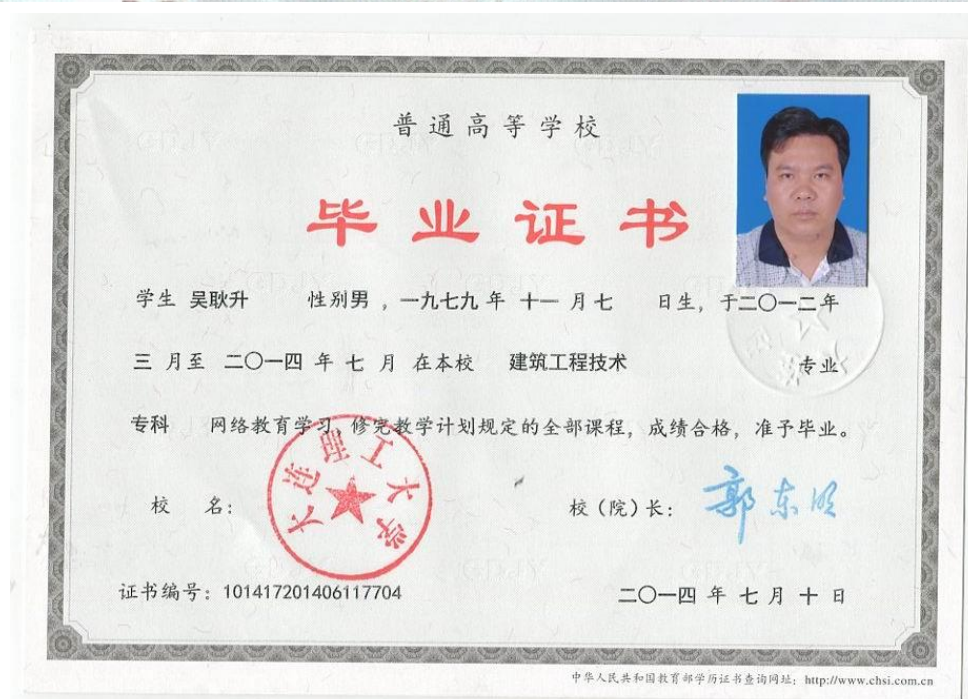 普通高等学校
毕业证书
学生 吴耿升 性别男，一九七九年 十一月七 日生，于二〇一二年
三 月至 二〇一四 年 七 月 在本校 建筑工程技术 专业
专科 网络教育学习，修完教学计划规定的全部课程，成绩合格，准予毕业。
大连理工大学
校 名：
校（院）长：
郭东明
证书编号：101417201406117704
二〇一四 年 七 月 十 日
中华人民共和国教育部学历证书查询网址：http://www.chsi.com.cn